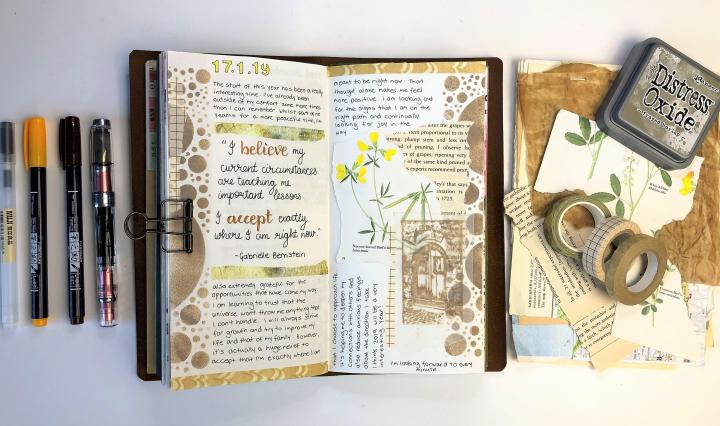 17.1.19
The start of this year has been a really
interesting time. I've already been
outside of my comfort zone more times
than I can remember. Whilst part of me
yearns for a more peaceful time, I'm
"I believe my
current circumstances
are teaching me
important lessons
I accept exactly
where I am right now."
-Gabrielle Bernstein
also extremely grateful for the
opportunities that have come my way.
I am learning to trust that the
universe won't throw me anything that
I can't handle. I will always strive
for growth and try to improve my
life and that of my family. However,
it's actually a huge relief to
accept that I'm exactly where I am
meant to be right now. That
thought alone makes me feel
more positive. I am looking out
for the signs that I am on the
right path and continually
looking for joy in the
after the grapes w
stem proportional to its
strong, plump stem and less on
of pruning, I observe
of grapes, ripening very
of the same kind pruned
experts recommend prun
ley's that says
in
1723.
ement of
that I choose to approach life.
it's helping me to deepen my
connections with others and
also reduce anxious feelings
about the direction I take.
I think 2019 will be a very
interesting year!
I'm looking forward to every
minute.
Distress
Oxide
MUJI